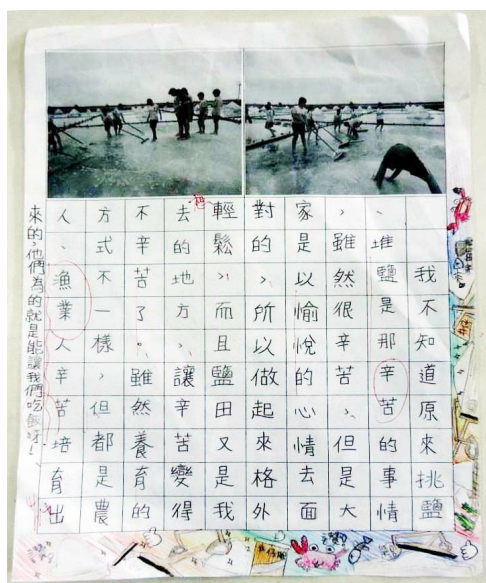 我不知道原來挑鹽
、堆鹽是那辛苦的事情
，雖然很辛苦，但是大
家是以愉悅的心情去面
對的，所以做起來格外
輕鬆，而且鹽田又是我
去的地方，讓辛苦變得
不辛苦了。雖然養育的
方式不一樣，但都是農
人、漁業人辛苦培育出
來的，他們為的就是能讓我們吃飯呀！